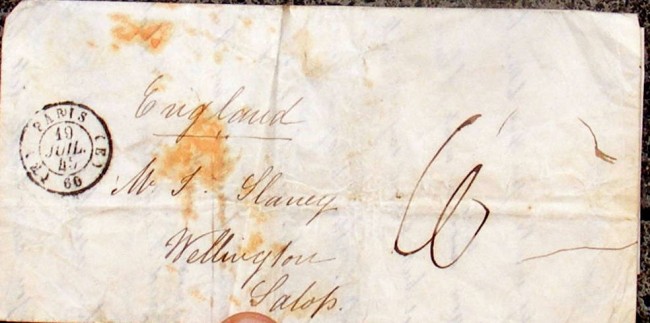 England
PARIS (E)
19
JUIL.
45
60
Mr. T. Slaney
6
Wellington
Salop.